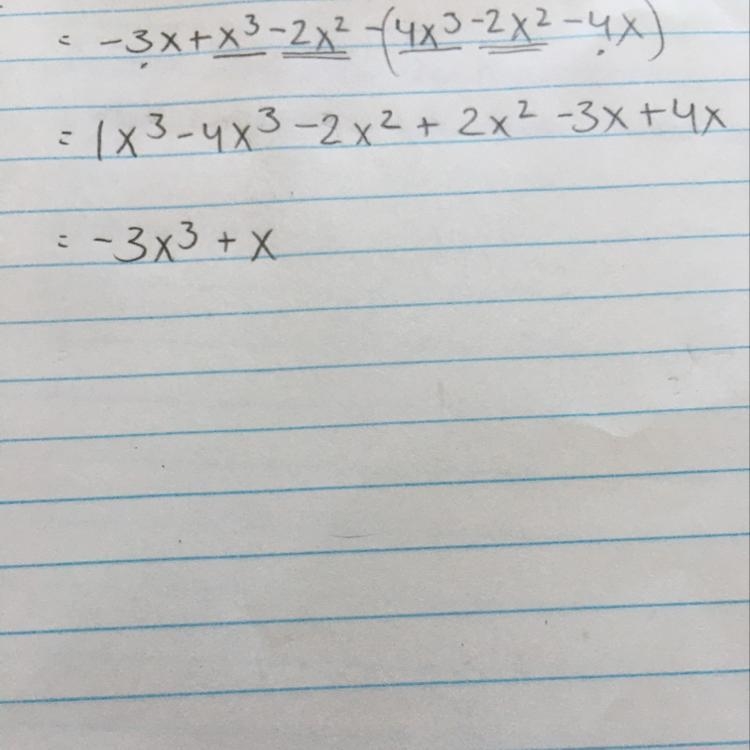 = -3x+x³-2x²-(4x³-2x²-4x)
= 1x³-4x³-2x²+2x²-3x+4x
= -3x³+x